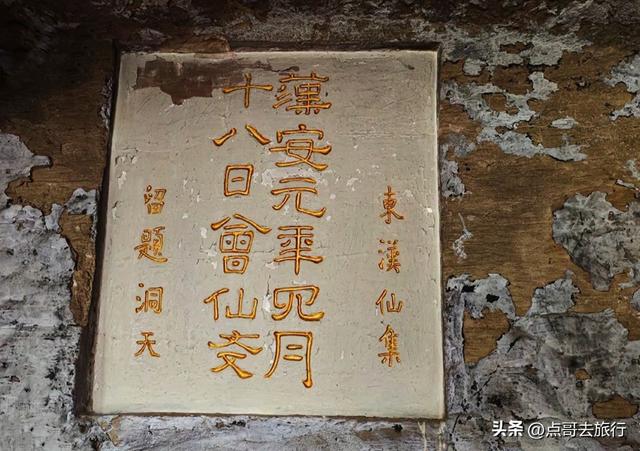 東漢仙集
漢安元年四月
十八日會仙友
留題洞天
头条 @点哥去旅行